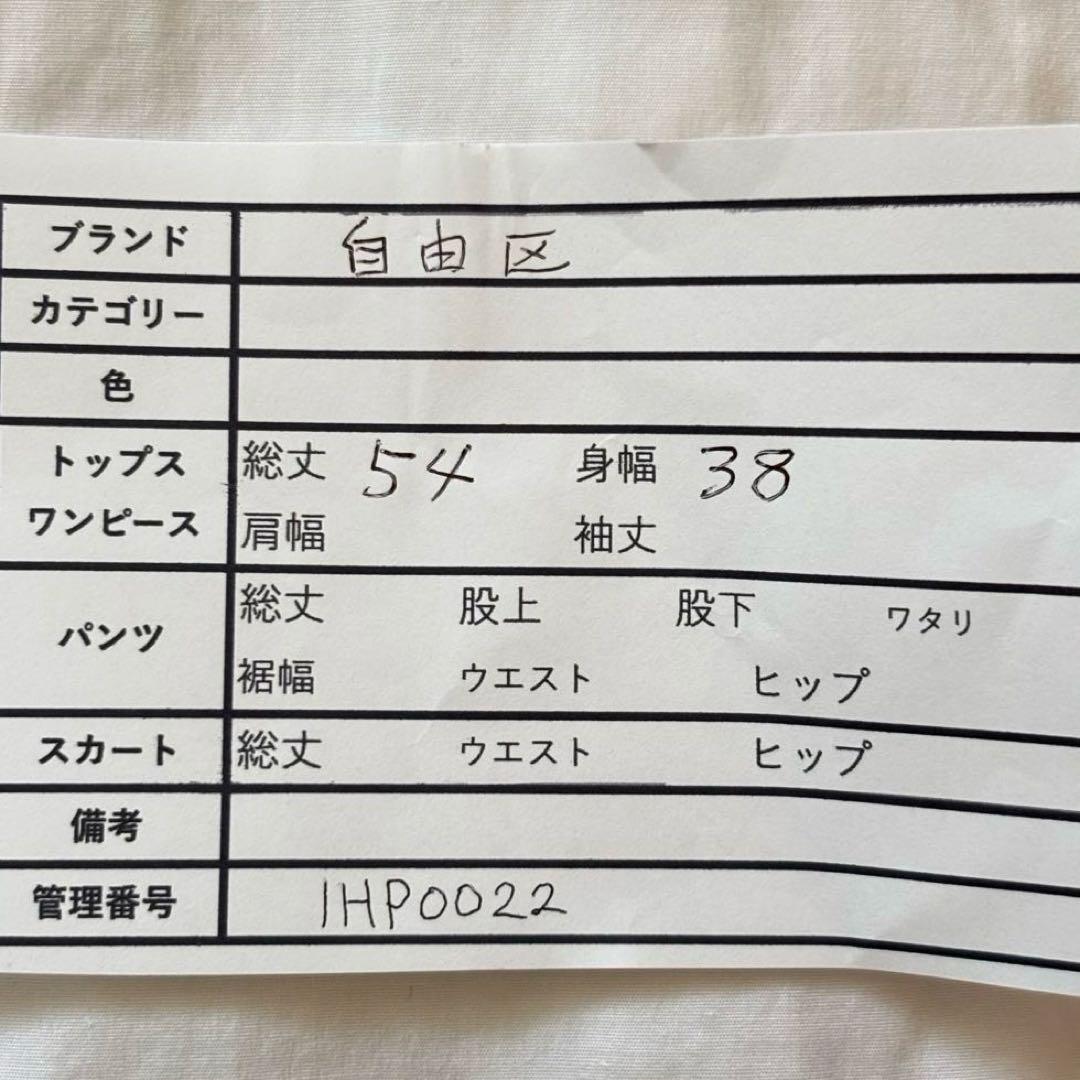 ブランド 自由区
カテゴリー
色
トップス ワンピース 総丈 54 身幅 38
肩幅 袖丈
パンツ 総丈 股上 股下 ワタリ
裾幅 ウエスト ヒップ
スカート 総丈 ウエスト ヒップ
備考
管理番号 IHP0022